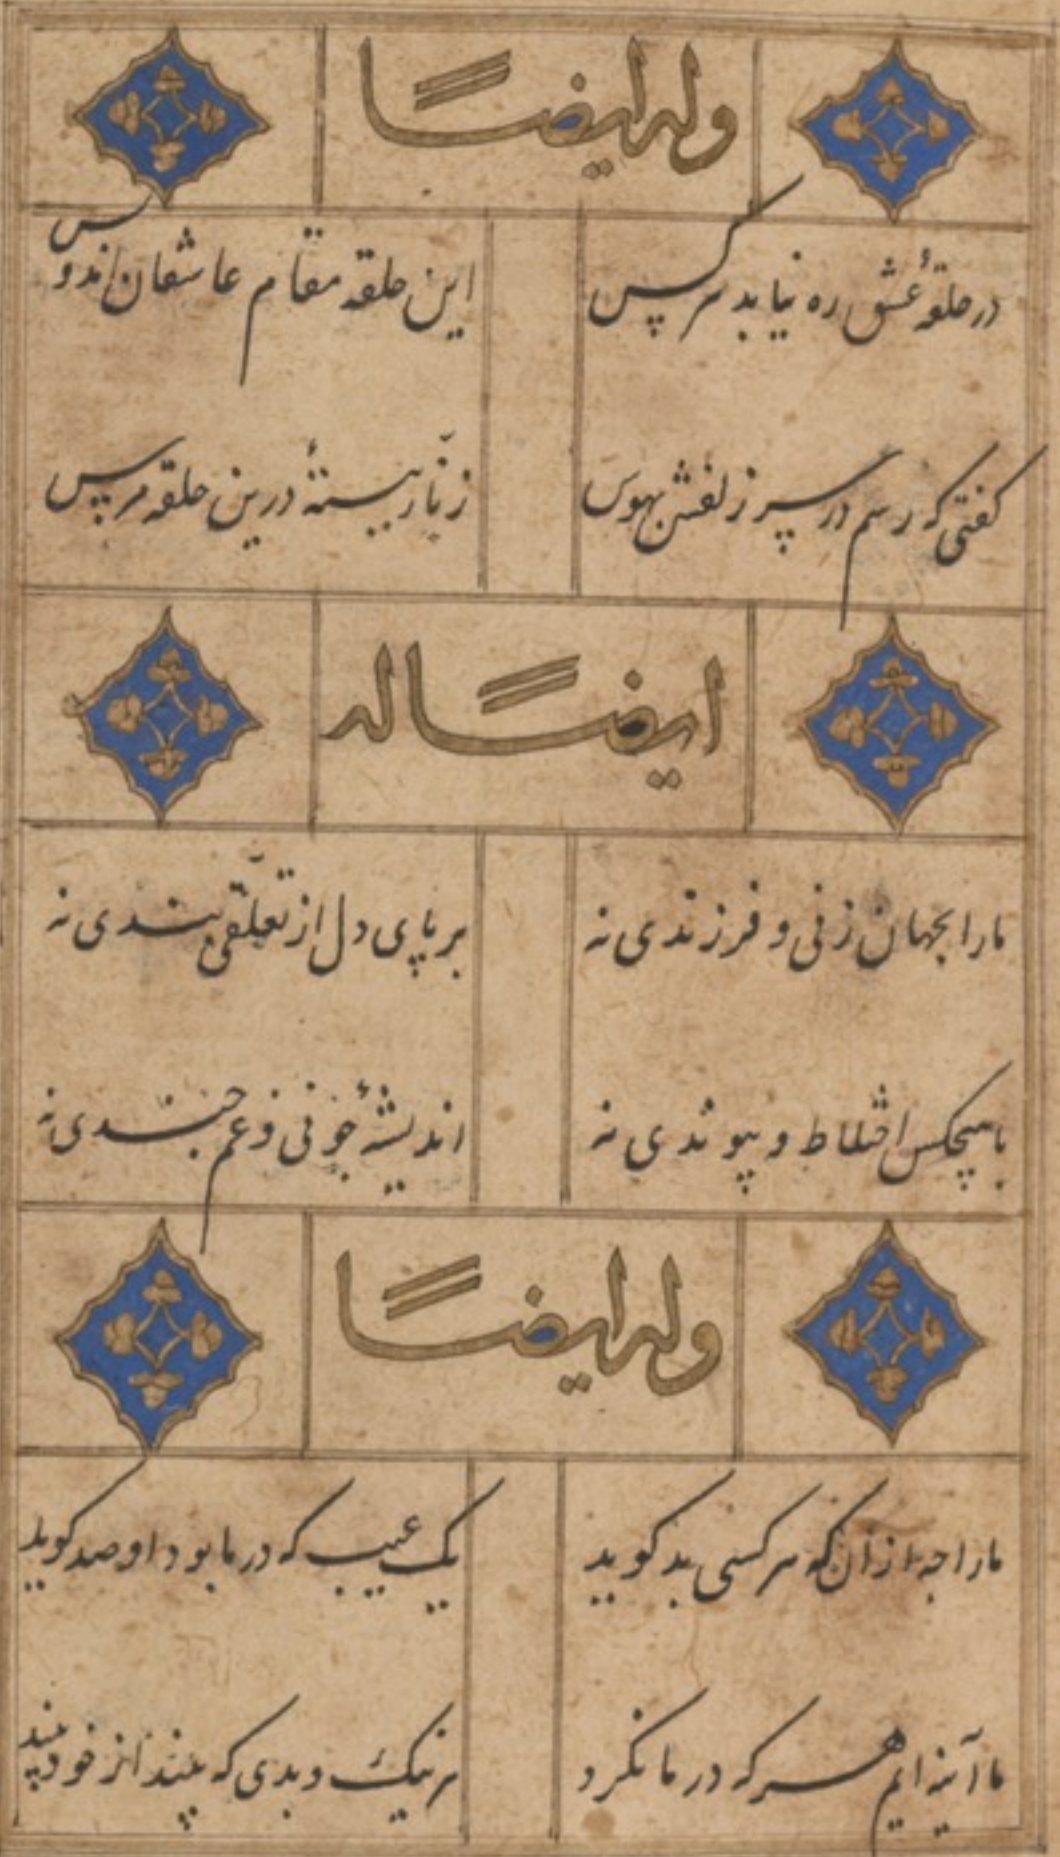 وله ایضاً
در حلقۀ عشق ره نیابد هر کس
این حلقه مقام عاشقان اند و بس
گفتی که رسم در سر زلفش بهوس
زنّار ببستۀ درین حلقه مرس
ایضاً له
ما را بجهان زنی و فرزندی نه
بر پای دل از تعلّقی بندی نه
با هیچکس اختلاط و پیوندی نه
اندیشۀ چونی و غم چندی نه
وله ایضاً
ما را چه از آن که هر کسی بد گوید
یک عیب که در ما بود او صد گوید
ما آینه ایم هر که در ما نگرد
هر نیک و بدی که بیند از خود بیند